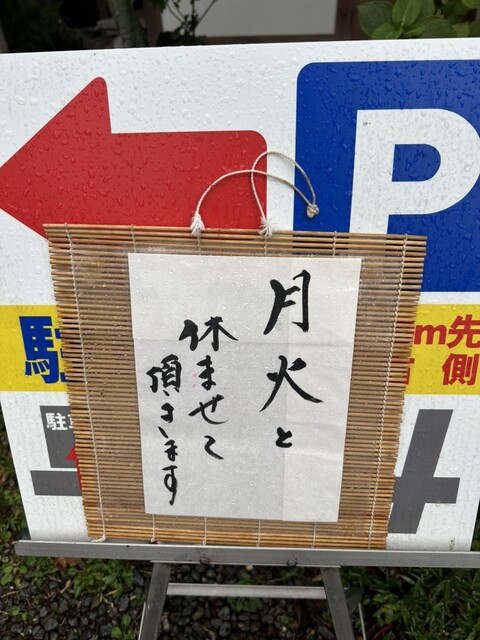 月火と
休ませて
頂きます
P
駐
m先
側
駐